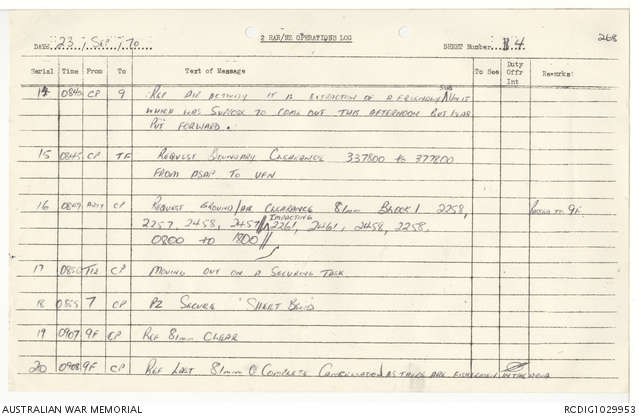 268
2 RAR/NZ OPERATIONS LOG
DATE 23 / Sep / 70 SHEET Number 4
Serial Time From To Text of Message To See Duty Offr Int Remarks
14 0840 CP 9 REF AIR ACTIVITY IT IS EXTRACTION OF A FRIENDLY SUB UNIT
WHICH WAS SUPPOSE TO COME OUT THIS AFTERNOON BUT WAS
PUT FORWARD.
15 0845 CP TF REQUEST BOUNDARY CLEARANCE 337800 to 377800
FROM ASAP TO UFN
16 0847 CP REQUEST GROUND/AIR CLEARANCE 81mm BLOCK 1 2258,
2257, 2458, 2457 // IMPACTING 2261, 2461, 2458, 2258.
0800 to 1800 //
TO 9F
17 CP MOVING OUT ON A SECURING TASK
18 0855 7 CP P2 SECURE 'SHEET BEND'
19 0907 9F CP REF 81mm CLEAR
20 0908 9F CP REF LAST 81mm COMPLETE CANCELLATION AS THERE ARE IN THE AREA
AUSTRALIAN WAR MEMORIAL
RCDIG1029953